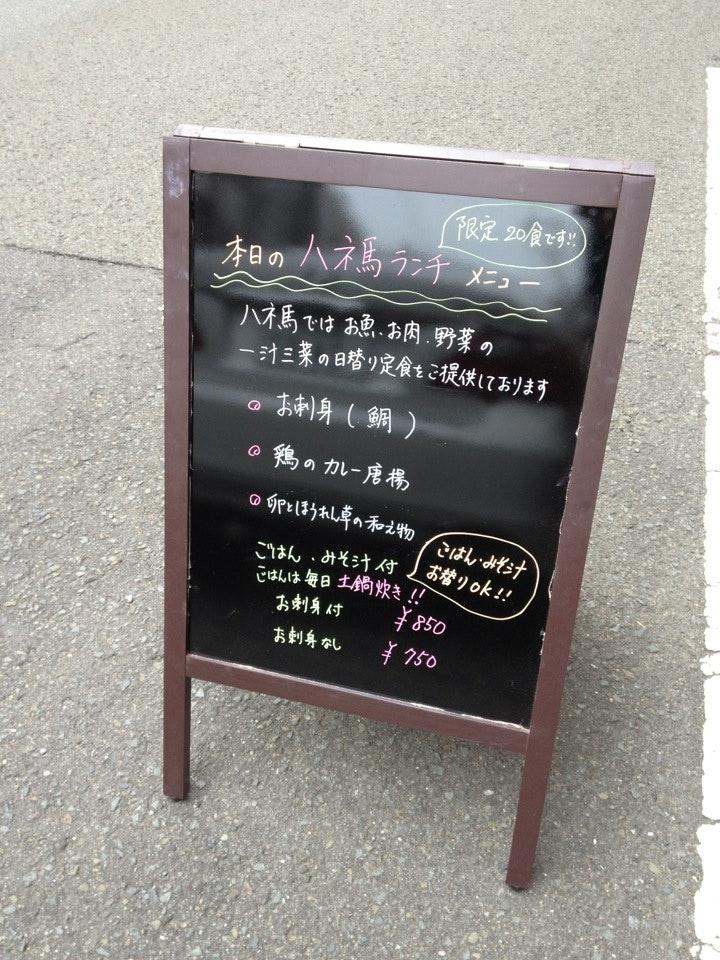 限定 20食です!!
本日の ハネ馬 ランチ メニュー
ハネ馬では お魚、お肉、野菜の
一汁三菜の日替り定食をご提供しております
お刺身(鯛)
鶏のカレー唐揚
卵とほうれん草の和え物
ごはん、みそ汁付
ごはんは毎日 土鍋炊き!!
ごはん・みそ汁
お替りOK!!
お刺身付 ¥850
お刺身なし ¥750